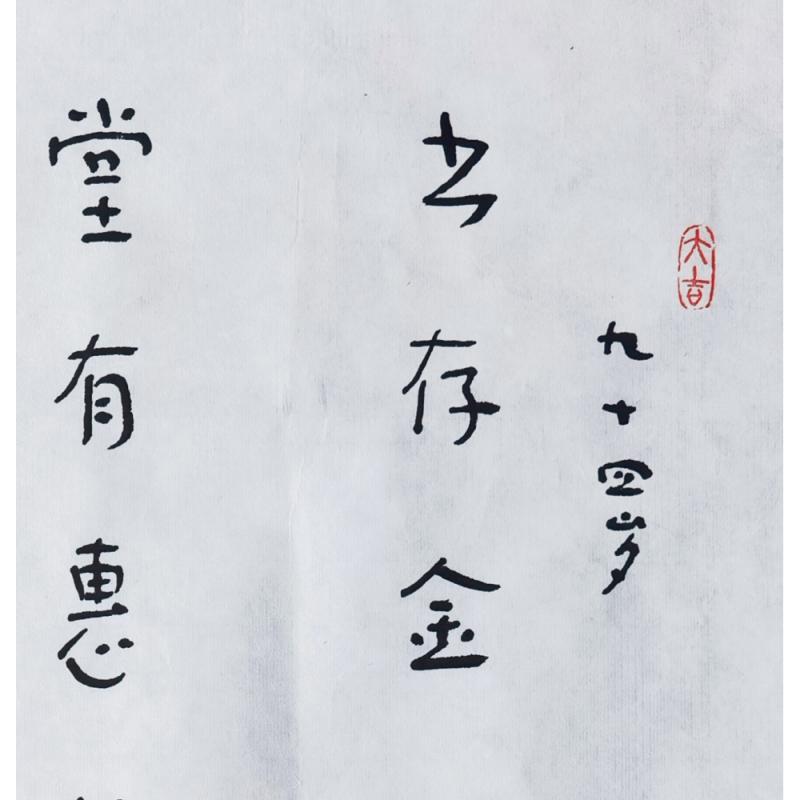 大吉
九十四岁
书存金
堂有惠